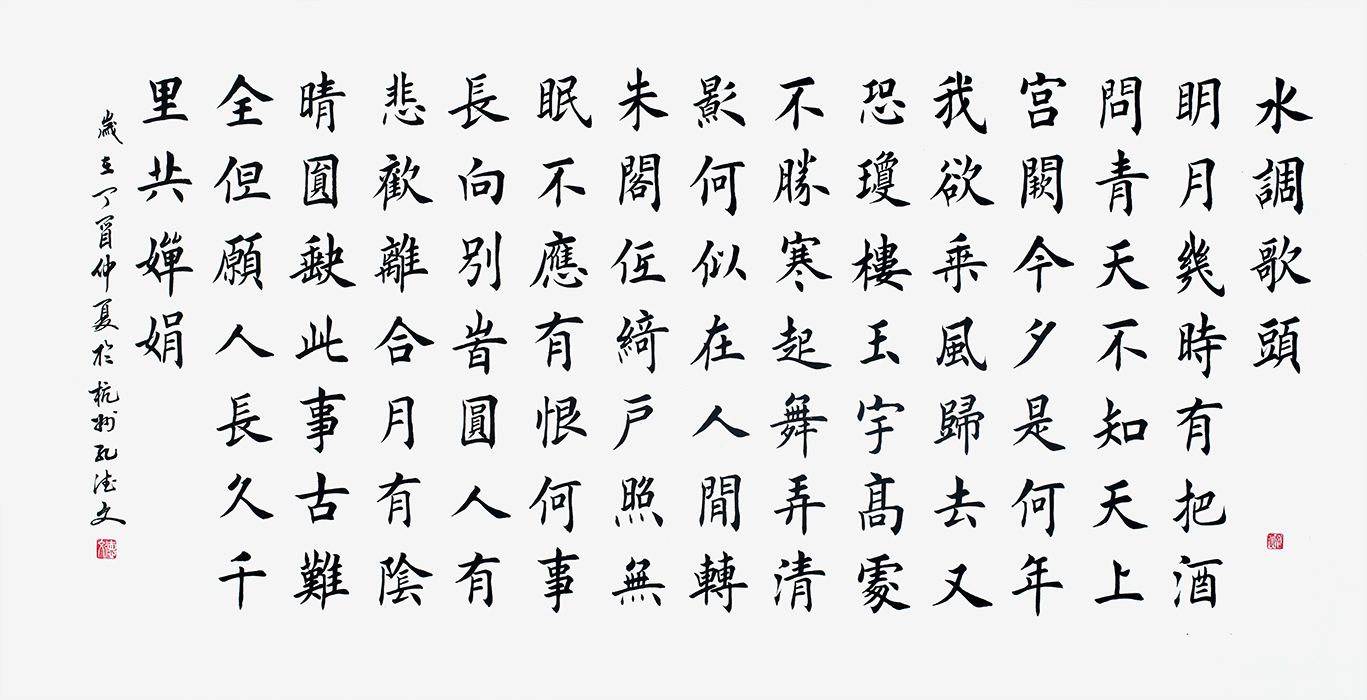 水調歌頭
明月幾時有把酒
問青天不知天上
宫闕今夕是何年
我欲乗風歸去又
恐瓊樓玉宇髙處
不勝寒起舞弄清
影何似在人閒轉
朱閣低綺户照無
眠不應有恨何事
長向别旹圓人有
悲歡離合月有陰
晴圓缺此事古難
全但願人長久千
里共嬋娟
歲在丁酉仲夏於杭州孔德文